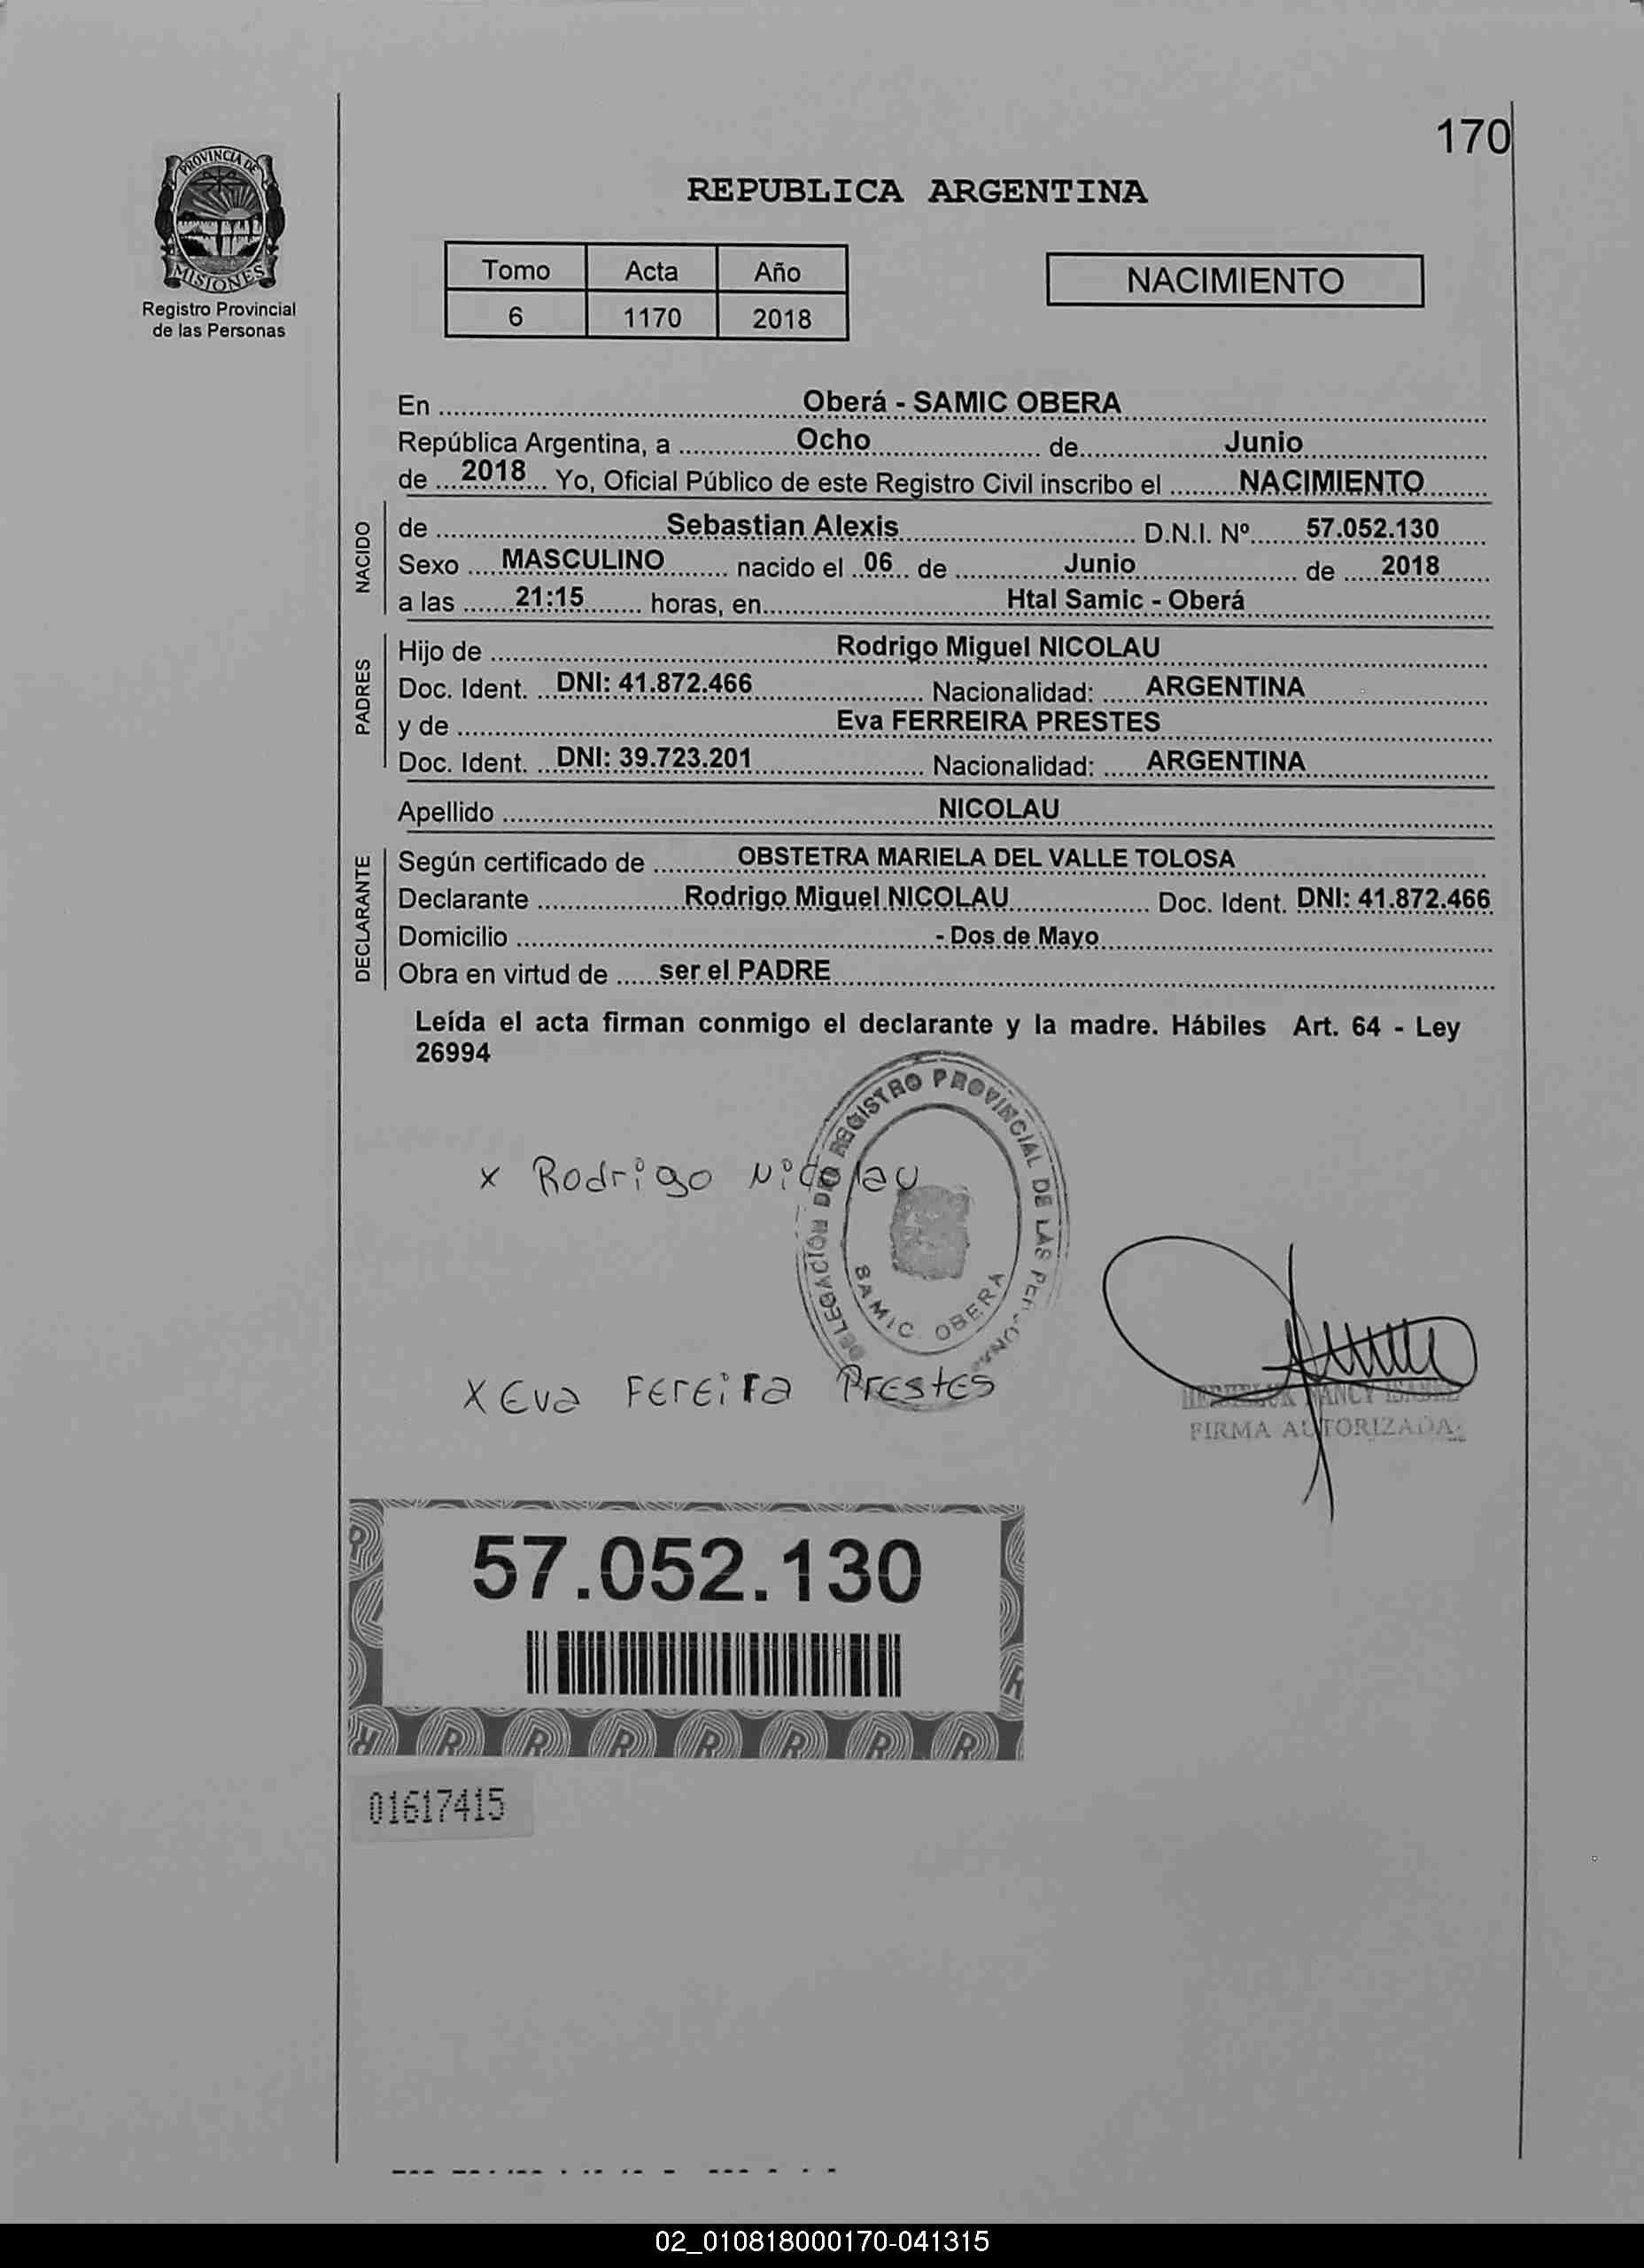 170
PROVINCIA DE
MISIONES
Registro Provincial
de las Personas
REPUBLICA ARGENTINA
Tomo Acta Año
6 1170 2018
NACIMIENTO
En Oberá - SAMIC OBERA
República Argentina, a Ocho de Junio
de 2018 Yo, Oficial Público de este Registro Civil inscribo el NACIMIENTO
NACIDO
de Sebastian Alexis D.N.I. Nº 57.052.130
Sexo MASCULINO nacido el 06 de Junio de 2018
a las 21:15 horas, en Htal Samic - Oberá
PADRES
Hijo de Rodrigo Miguel NICOLAU
Doc. Ident. DNI: 41.872.466 Nacionalidad: ARGENTINA
y de Eva FERREIRA PRESTES
Doc. Ident. DNI: 39.723.201 Nacionalidad: ARGENTINA
Apellido NICOLAU
DECLARANTE
Según certificado de OBSTETRA MARIELA DEL VALLE TOLOSA
Declarante Rodrigo Miguel NICOLAU Doc. Ident. DNI: 41.872.466
Domicilio - Dos de Mayo
Obra en virtud de ser el PADRE
Leída el acta firman conmigo el declarante y la madre. Hábiles Art. 64 - Ley
26994
DELEGACIÓN DEL REGISTRO PROVINCIAL DE LAS
SAMIC OBERA
x Rodrigo Nicolau
X Eva Fereira Prestes
NANCY ISABEL
FIRMA AUTORIZADA
57.052.130
01617415
02_010818000170-041315